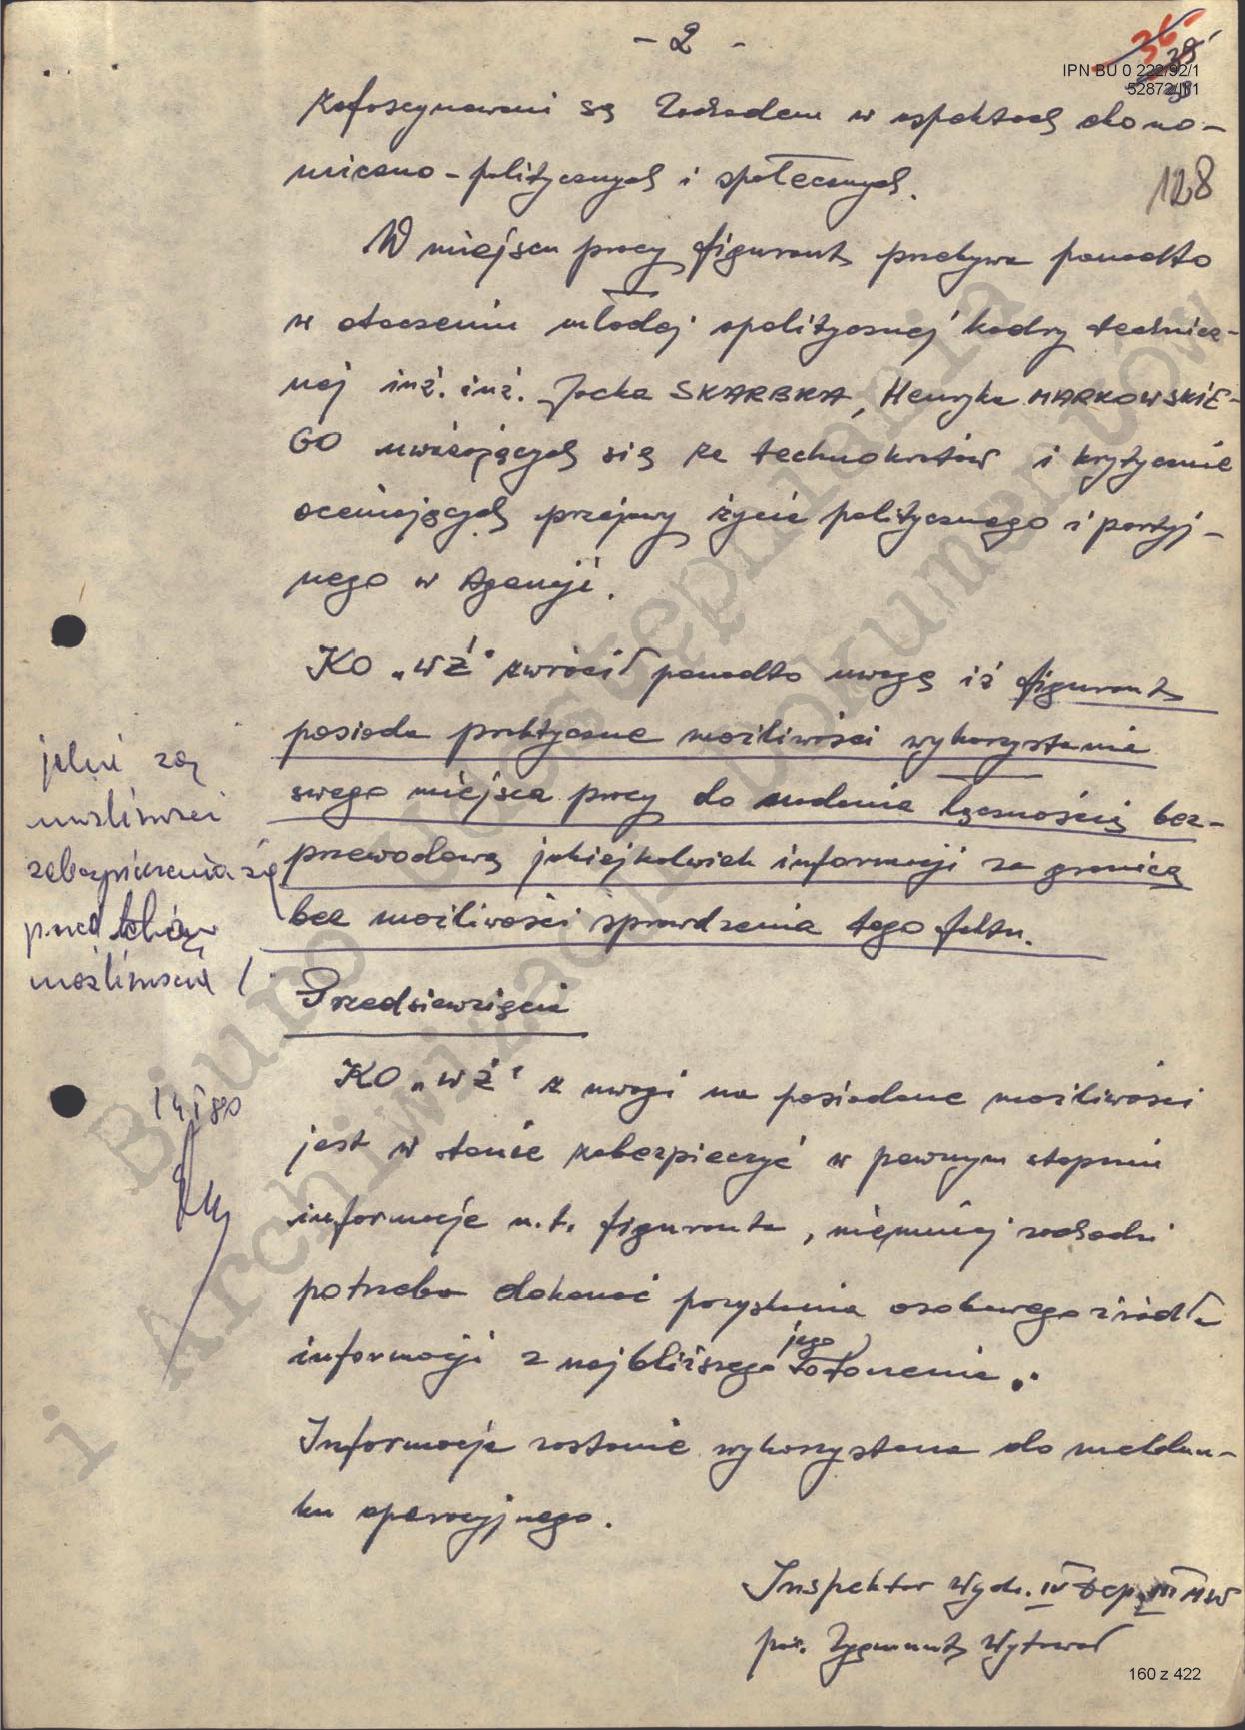 - 2 -
36
39
IPN BU 0 222/92/1
52872/II/1
128
Zafascynowani są Zachodem w aspektach ekono-
miczno-politycznych i społecznych.
W miejscu pracy figurant przebywa ponadto
w otoczeniu młodej apolitycznej kadry technicz-
nej inż. inż. Jacka SKARBKA, Henryka MARKOWSKIE-
GO uważających się za technokratów i krytycznie
oceniających przejawy życia politycznego i partyj-
nego w Agencji.
KO „WŻ" zwrócił ponadto uwagę iż figurant
posiada praktyczne możliwości wykorzystania
swego miejsca pracy do nadania łącznością bez-
przewodową jakiejkolwiek informacji za granicę
bez możliwości sprawdzenia tego faktu.
jakie są
możliwości
zabezpieczenia się
przed taką
możliwością /
Przedsięwzięcia
KO „WŻ" z uwagi na posiadane możliwości
jest w stanie zabezpieczyć w pewnym stopniu
informacje n.t. figuranta, niemniej zachodzi
potrzeba dokonać pozyskania osobowego źródła
informacji z najbliższego jego otoczenia.
14 I 80
Informacja zostanie wykorzystana do meldun-
ku operacyjnego.
Inspektor Wydz. IV Dep. III MSW
por. Zygmunt Wytrwał
160 z 422
Biuro Udostępniania
i Archiwizacji Dokumentów